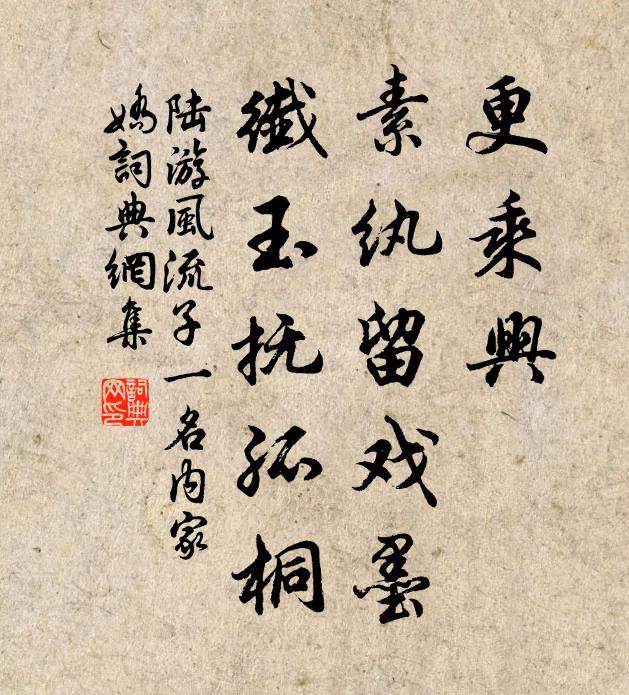 更乘興
素纨留戏墨
纖玉抚孤桐
陆游風流子一名内家
嬌詞典網集
詞典
网印